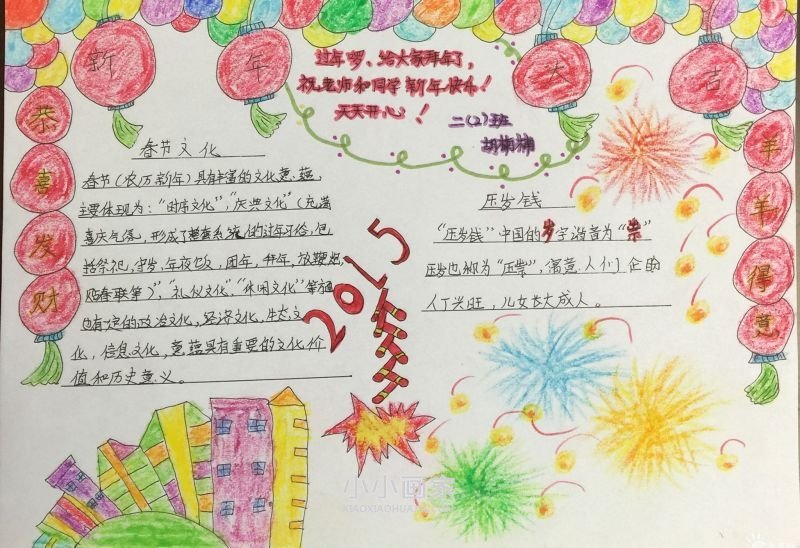 新 年 大 吉
恭喜发财
过年啰、给大家拜年了,
祝老师和同学新年快乐!
天天开心!
二(2)班
春节文化
春节(农历新年)具有丰富的文化意蕴,
主要体现为:“时序文化”,“庆典文化”(充满
喜庆气氛,形成了整套系统的过年习俗,包
括祭祀,守岁、年夜饭,团年,拜年,放鞭炮,
贴春联等)”,“礼仪文化”,“休闲文化”等方面
也有一定的政治文化,经济文化,生态文
化,信息文化,意蕴具有重要的文化价
值和历史意义。
2015
压岁钱
“压岁钱”中国的岁字谐音为“祟”
压岁也称为“压祟”,寓意人们企盼
人丁兴旺,儿女长大成人。
羊羊得意
小小画家
XIAOXIAOHUA